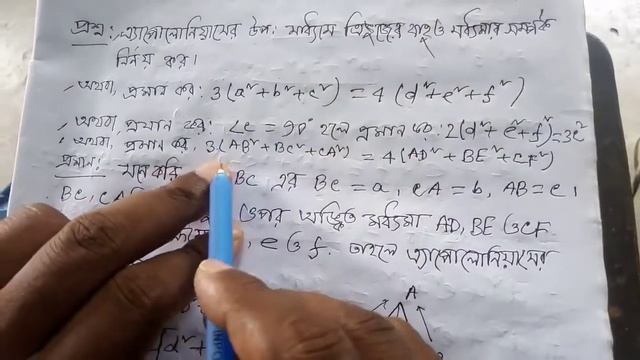 প্রশ্ন: এ্যাপোলোনিয়াসের উপ: মাধ্যমে ত্রিভুজের বাহু ও মধ্যমার সম্পর্ক
নির্নয় কর।
অথবা, প্রমান কর: 3(a²+b²+c²) = 4(d²+e²+f²)
অথবা, প্রমান কর: ∠c = 90° হলে প্রমান কর: 2(d²+e²+f²)=3c²
অথবা, প্রমান কর, 3(AB²+BC²+CA²) = 4(AD²+BE²+CF²)
প্রমান: মনে করি BC এর BC = a, CA = b, AB = c।
BC, CA উপর অঙ্কিত মধ্যমা AD, BE ও CF
, e ও f. তাহলে এ্যাপোলোনিয়াসের
A
d²+